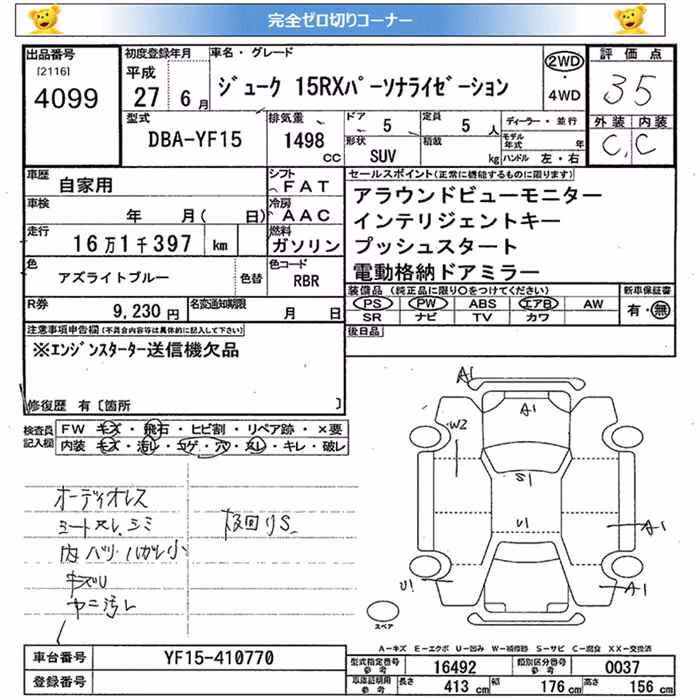 完全ゼロ切りコーナー
出品番号
[2116]
4099
初度登録年月
平成
27年 6月
車名・グレード
ジューク 15RXパーソナライゼーション
2WD
・
4WD
評価点
3 5
外装 内装
C, C
型式
DBA-YF15
排気量
1498
CC
ドア 5
定員 5 人
形状 SUV
積載 kg
ディーラー・並行
モデル年式 年
ハンドル 左・右
車歴
自家用
シフト
FAT
車検
年 月( 日)
冷房
AAC
走行
16万1千397 km
燃料
ガソリン
色
アズライトブルー
色替
色コード
RBR
R券
9,230 円
名変通知期限
月 日
セールスポイント(正常に機能するものに限ります)
アラウンドビューモニター
インテリジェントキー
プッシュスタート
電動格納ドアミラー
装備品 (純正品に限り○をつけてください)
PS PW ABS エアB AW
SR ナビ TV カワ
新車保証書
有・無
後日品
注意事項申告欄(不具合内容等は具体的に記入して下さい)
※エンジンスターター送信機欠品
修復歴 有〔箇所 〕
検査員
記入欄
FW キズ・飛石・ヒビ割・リペア跡・×要
内装 キズ・汚レ・コゲ・穴・スレ・キレ・破レ
オーディオレス
シートスレ、シミ
内バリ ハガレ小
キズU
ヤニ汚レ
下回りS
A1
A1
W2
S1
U1
A1
U1
A1
スペア
A－キズ E－エクボ U－凹み W－補修跡 S－サビ C－腐食 XX－交換済
車台番号
YF15-410770
登録番号
型式指定番号
参考
16492
類別区分番号
参考
0037
車庫証明用
参考
長さ 413 cm
幅 176 cm
高さ 156 cm